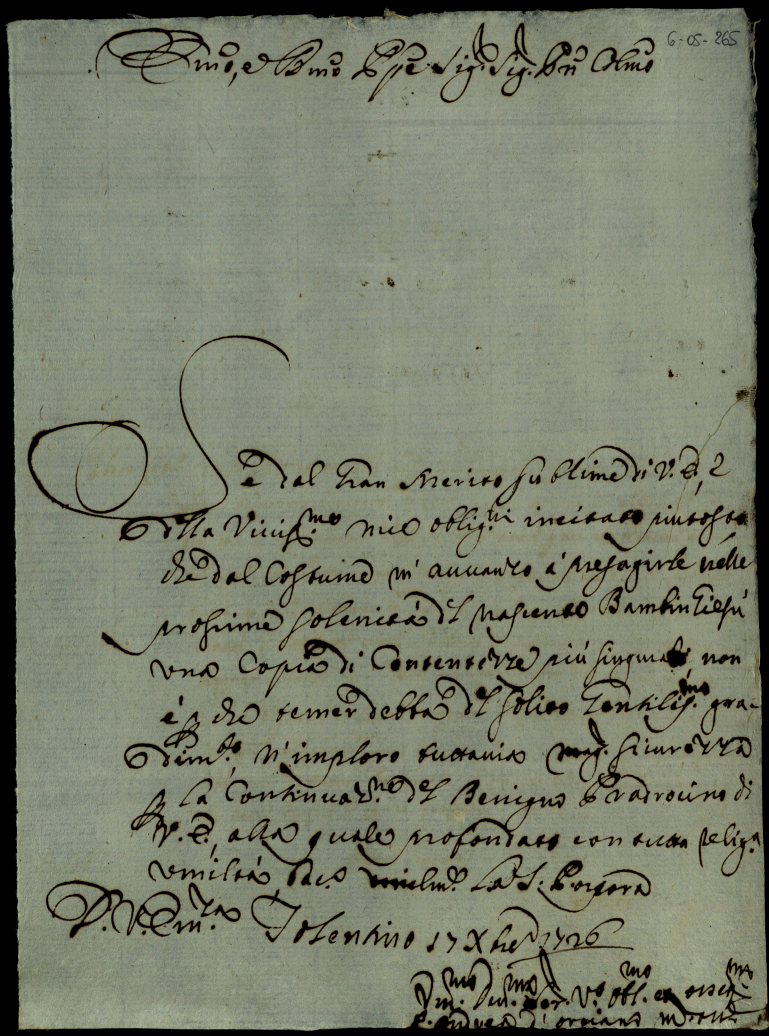 6-05-265
Emo, e Rmo Ppe Sig.r Sig.r Prn Colmo
Se dal Gran Merito sublime di V. E., e
della Vivis.mo mie oblig.ni incitato piutosto
che dal Costume m'avvanzo à presagirle nelle
prossime solenità del nascente Bambin Giesù
una Copia di Contentezze più singulari non
è p che temer debba del solito Gentilis.mo gra-
dim.to, n'imploro tuttavia mag.r sicurezza
p la Continuaz.ne del Benigno Pradrocino di
V. E., alla quale profondato con tutta
umiltà bacio umilm.e La S. Porpora
D. V. Em.za Tolentino 17 Xbre 1726
Um.mo Dev.mo Ser. V.o Obl.mo et osseq.mo